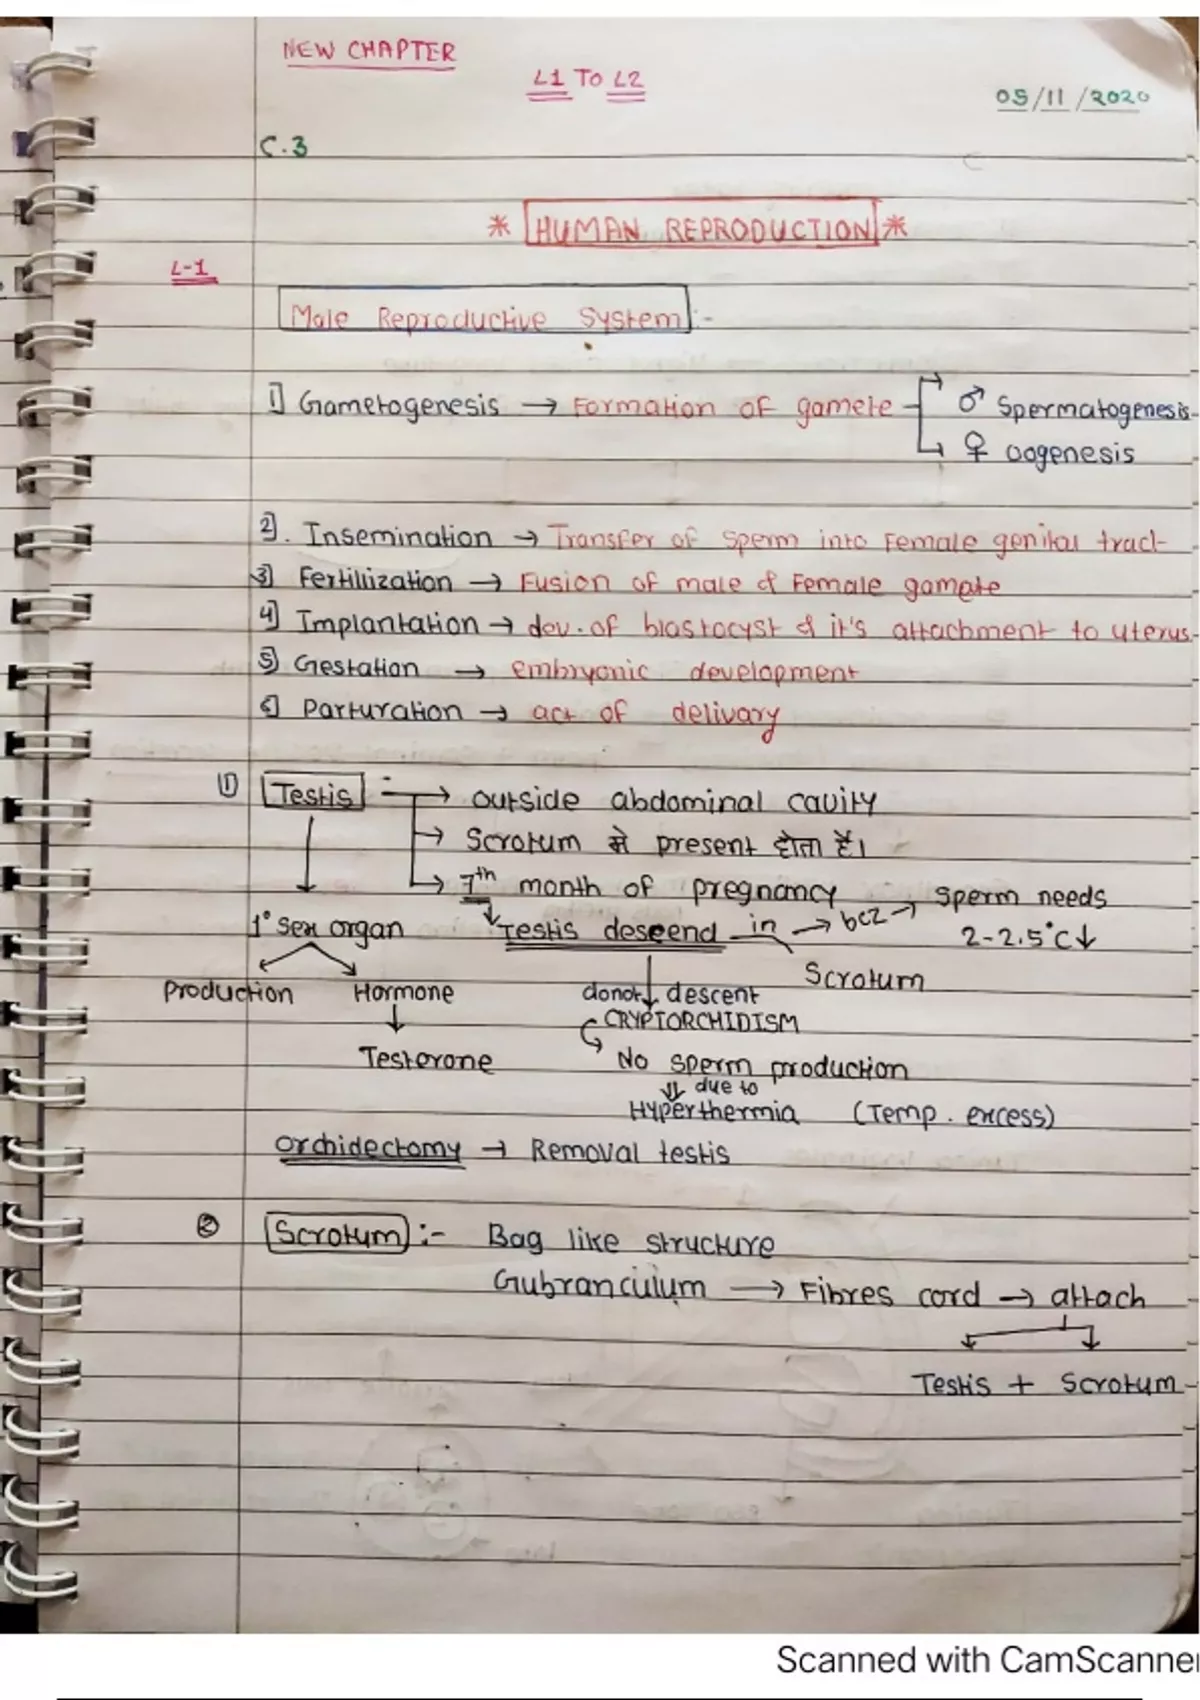 NEW CHAPTER
L1 TO L2
05/11/2020
C.3
* HUMAN REPRODUCTION *
L-1
Male Reproductive System :-
1) Gametogenesis → Formation of gamete → ♂ Spermatogenesis
→ ♀ oogenesis
2). Insemination → Transfer of sperm into Female genital tract
3) Fertillization → Fusion of male & Female gamate
4) Implantation → dev. of blastocyst & it's attachment to uterus
5) Gestation → embryonic development
6) Parturation → act of delivary
1) Testis :- → outside abdominal cavity
→ Scrotum मे present होता हैं।
→ 7th month of pregnancy
1° sex organ
Testis descend in → bcz → Sperm needs
2-2.5°C↓
Scrotum
Production Hormone
donot ↓ descent
CRYPTORCHIDISM
Testorone
No sperm production
⇓ due to
Hyperthermia (Temp. excess)
Orchidectomy → Removal testis
2) Scrotum :- Bag like structure
Gubranculum → Fibres cord → attach
Testis + Scrotum
Scanned with CamScanner